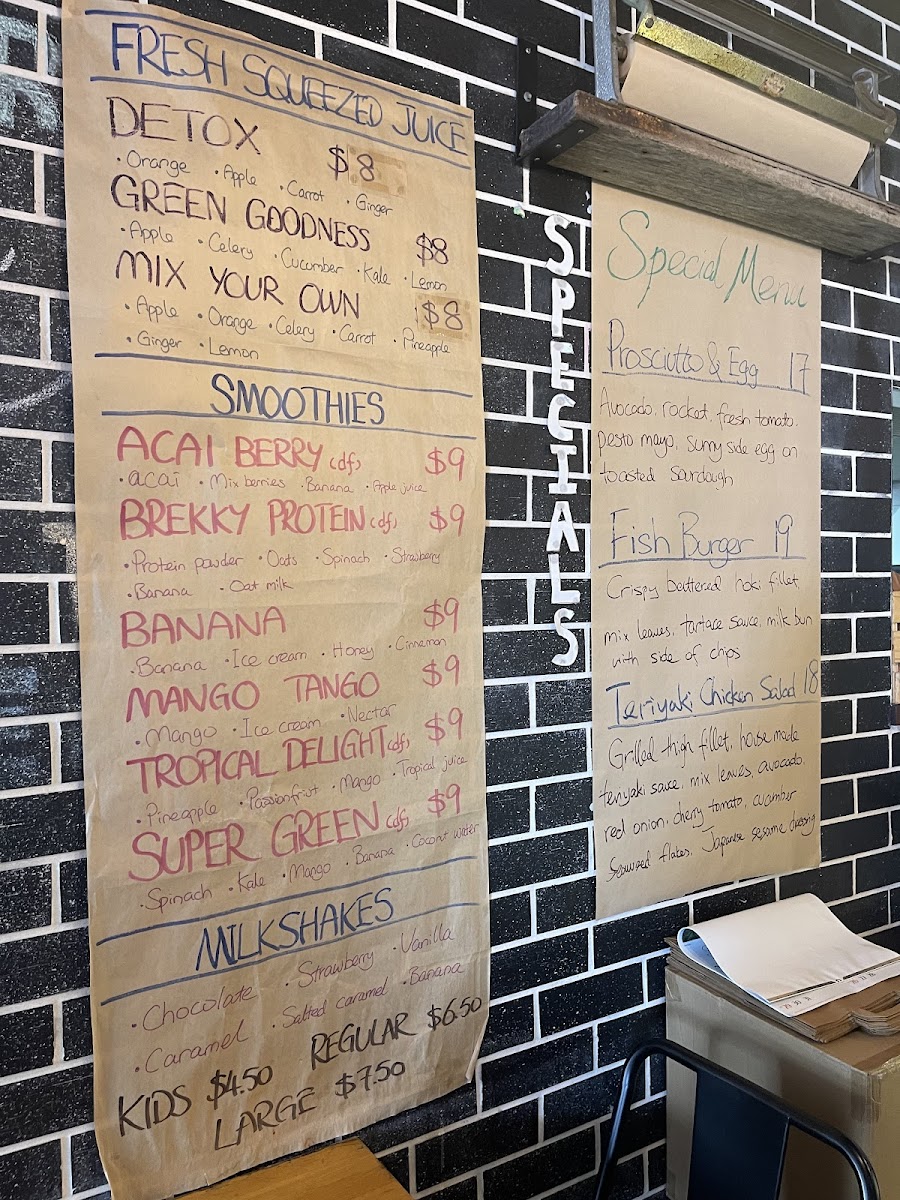 FRESH SQUEEZED JUICE
DETOX $8
• Orange • Apple • Carrot • Ginger
GREEN GOODNESS $8
• Apple • Celery • Cucumber • Kale • Lemon
MIX YOUR OWN $8
• Apple • Orange • Celery • Carrot • Pineapple
• Ginger • Lemon
SMOOTHIES
ACAI BERRY (df) $9
• acai • Mix berries • Banana • Apple juice
BREKKY PROTEIN (df) $9
• Protein powder • Oats • Spinach • Strawberry
• Banana • Oat milk
BANANA $9
• Banana • Ice cream • Honey • Cinnamon
MANGO TANGO $9
• Mango • Ice cream • Nectar
TROPICAL DELIGHT (df) $9
• Pineapple • Passionfruit • Mango • Tropical juice
SUPER GREEN (df) $9
• Spinach • Kale • Mango • Banana • Coconut water
MILKSHAKES
• Chocolate • Strawberry • Vanilla
• Caramel • Salted caramel • Banana
KIDS $4.50 REGULAR $6.50
LARGE $7.50
SPECIALS
Special Menu
Prosciutto & Egg 17
Avocado, rocket, fresh tomato,
pesto mayo, sunny side egg on
toasted sourdough
Fish Burger 19
Crispy battered hoki fillet,
mix leaves, tartare sauce, milk bun
with side of chips
Teriyaki Chicken Salad 18
Grilled thigh fillet, house made
teriyaki sauce, mix leaves, avocado,
red onion, cherry tomato, cucumber
Seaweed flakes, Japanese sesame dressing